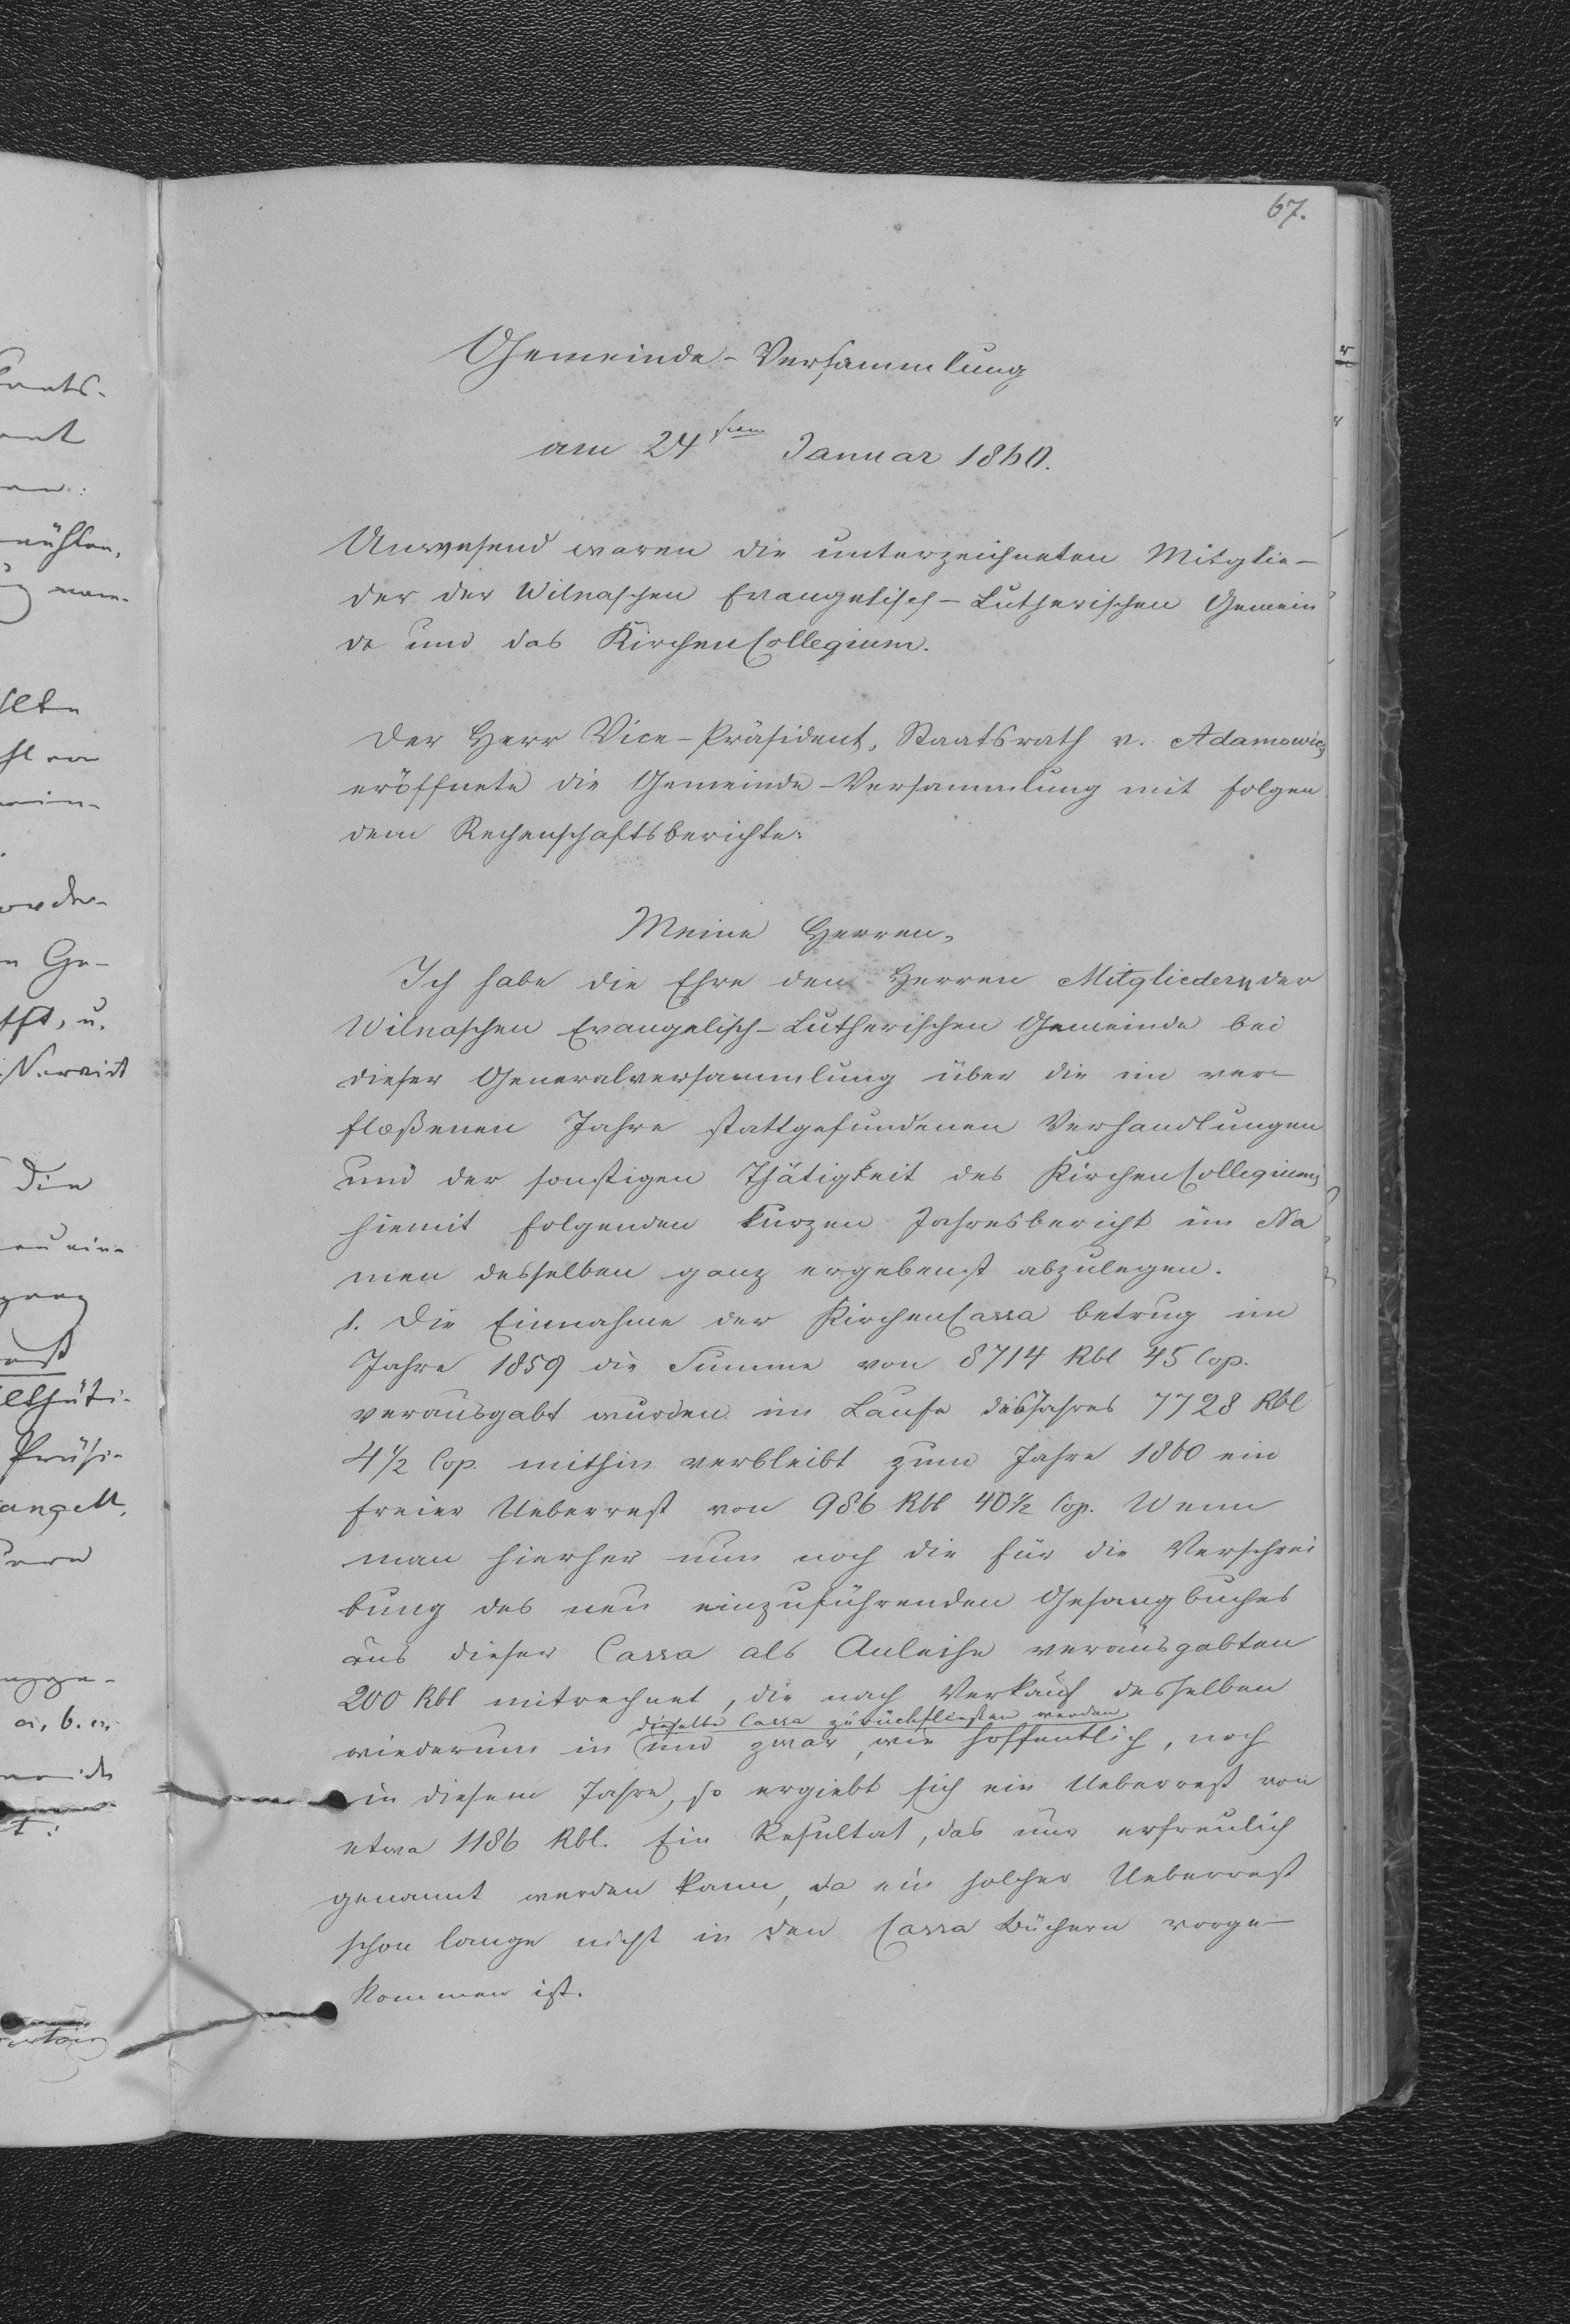 67.
Gemeinde-Versammlung
am 24sten Januar 1860.
Anwesend waren die unterzeichneten Mitglie-
der der Wilnaschen Evangelisch-Lutherischen Gemein
de und das KirchenCollegium.
Der Herr Vice-Präsident, Staatsrath v. Adamowicz
eröffnete die Gemeinde-Versammlung mit folgen
dem Rechenschaftsberichte:
Meine Herren,
Ich habe die Ehre den Herren Mitgliedern der
Wilnaschen Evangelisch-Lutherischen Gemeinde bei
dieser Generalversammlung über die im ver-
floßenen Jahre stattgefundenen Verhandlungen
und der sonstigen Thätigkeit des KirchenCollegiums
hiemit folgenden kurzen Jahresbericht im Na
men desselben ganz ergebenst abzulegen.
1. Die Einnahme der KirchenCassa betrug im
Jahre 1859 die Summe von 8714 Rbl 45 Cop.
verausgabt wurden im Laufe des Jahres 7728 Rbl
4½ Cop. mithin verbleibt zum Jahre 1860 ein
freier Ueberrest von 986 Rbl 40½ Cop. Wenn
man hierher nun noch die für die Verschrei
bung des neu einzuführenden Gesangbuches
aus dieser Cassa als Anleihe verausgabten
200 Rbl mitrechnet, die nach Verkauf desselben
dieselbe Cassa zurückfließen werden
wiederum in und zwar, wie hoffentlich, noch
in diesem Jahre, so ergiebt sich ein Ueberrest von
etwa 1186 Rbl. Ein Resultat, das nur erfreulich
genannt werden kann, da ein solcher Ueberrest
schon lange nicht in den Cassa Büchern vorge-
kommen ist.